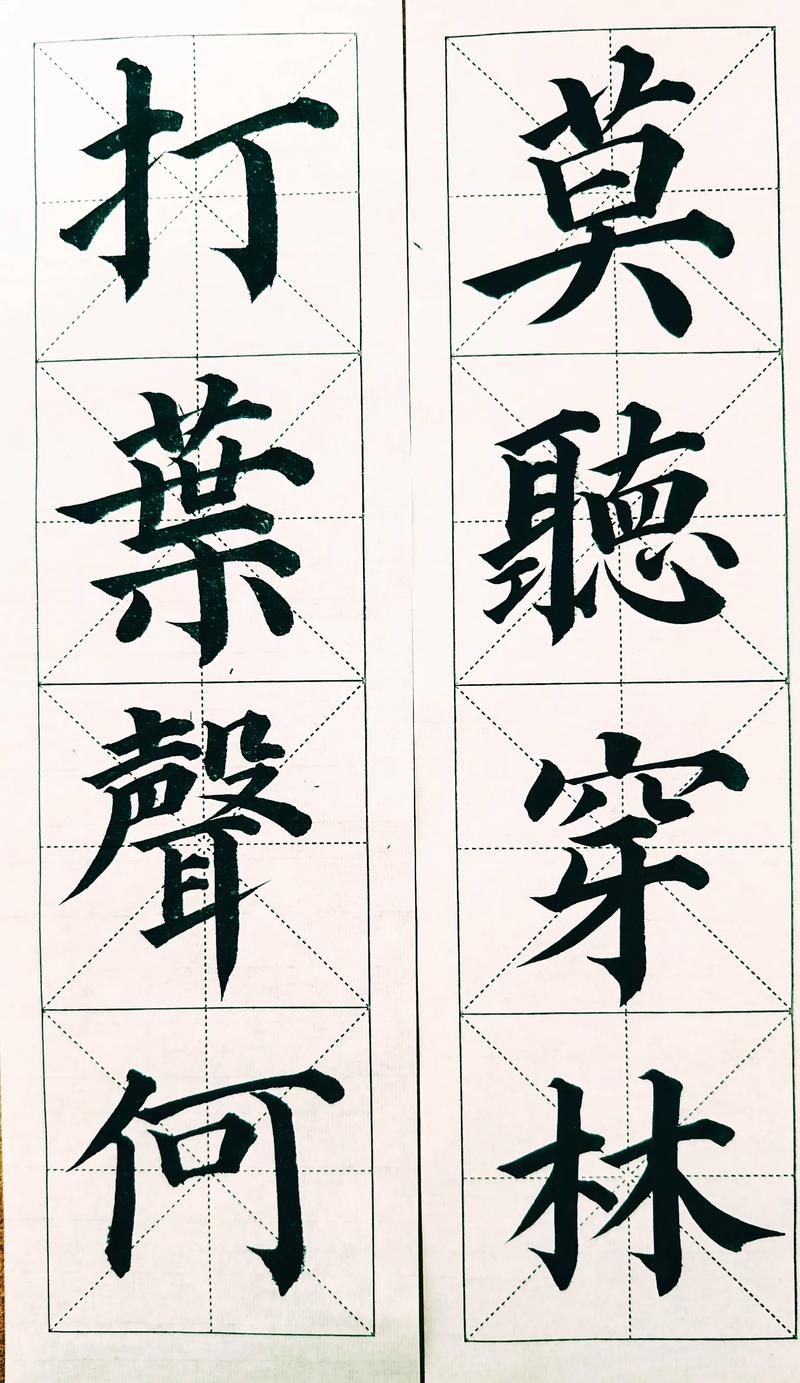 莫聽穿林
打葉聲何